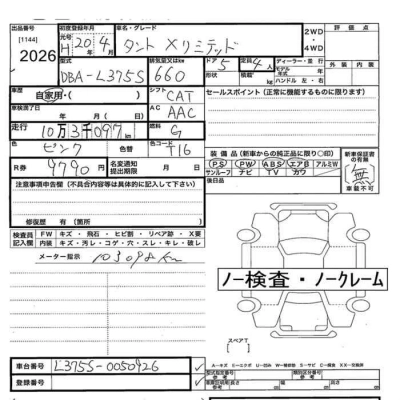 出品番号 初度登録年月 車名・グレード 評価点
[1144] 元号 H 20年 4月 タント Xリミテッド 2WD・4WD
2026 型式 排気量又は㎤ ドア 定員 ディーラー・並行 外装 内装
DBA-L375S 660 5 4人 モデル年式 年 ハンドル 左・右
車歴 シフト セールスポイント (正常に機能するものに限ります)
自家用・( ) CAT
車検満了日 AC
年 月 日 AAC
走行 10万3千097km 燃料 G
色 ピンク 色コード T16
装備品 (新車からの純正品に限り○印) 新車保証書の有無
PS PW ABS エアB アルミW
R券 9790円 名変通知提出期限 サンルーフ ナビ TV カワ
(無)
車載不可
注意事項申告欄 (不具合内容等は具体的に記入して下さい) 後日品
修復歴 有 (箇所 )
検査員記入欄 FW キズ・飛石・ヒビ割・リペア跡・X要
内装 キズ・汚レ・コゲ・穴・スレ・キレ・破レ
メーター指示 103098km
ノー検査・ノークレーム
スペアT
車台番号 L375S-0050926
登録番号